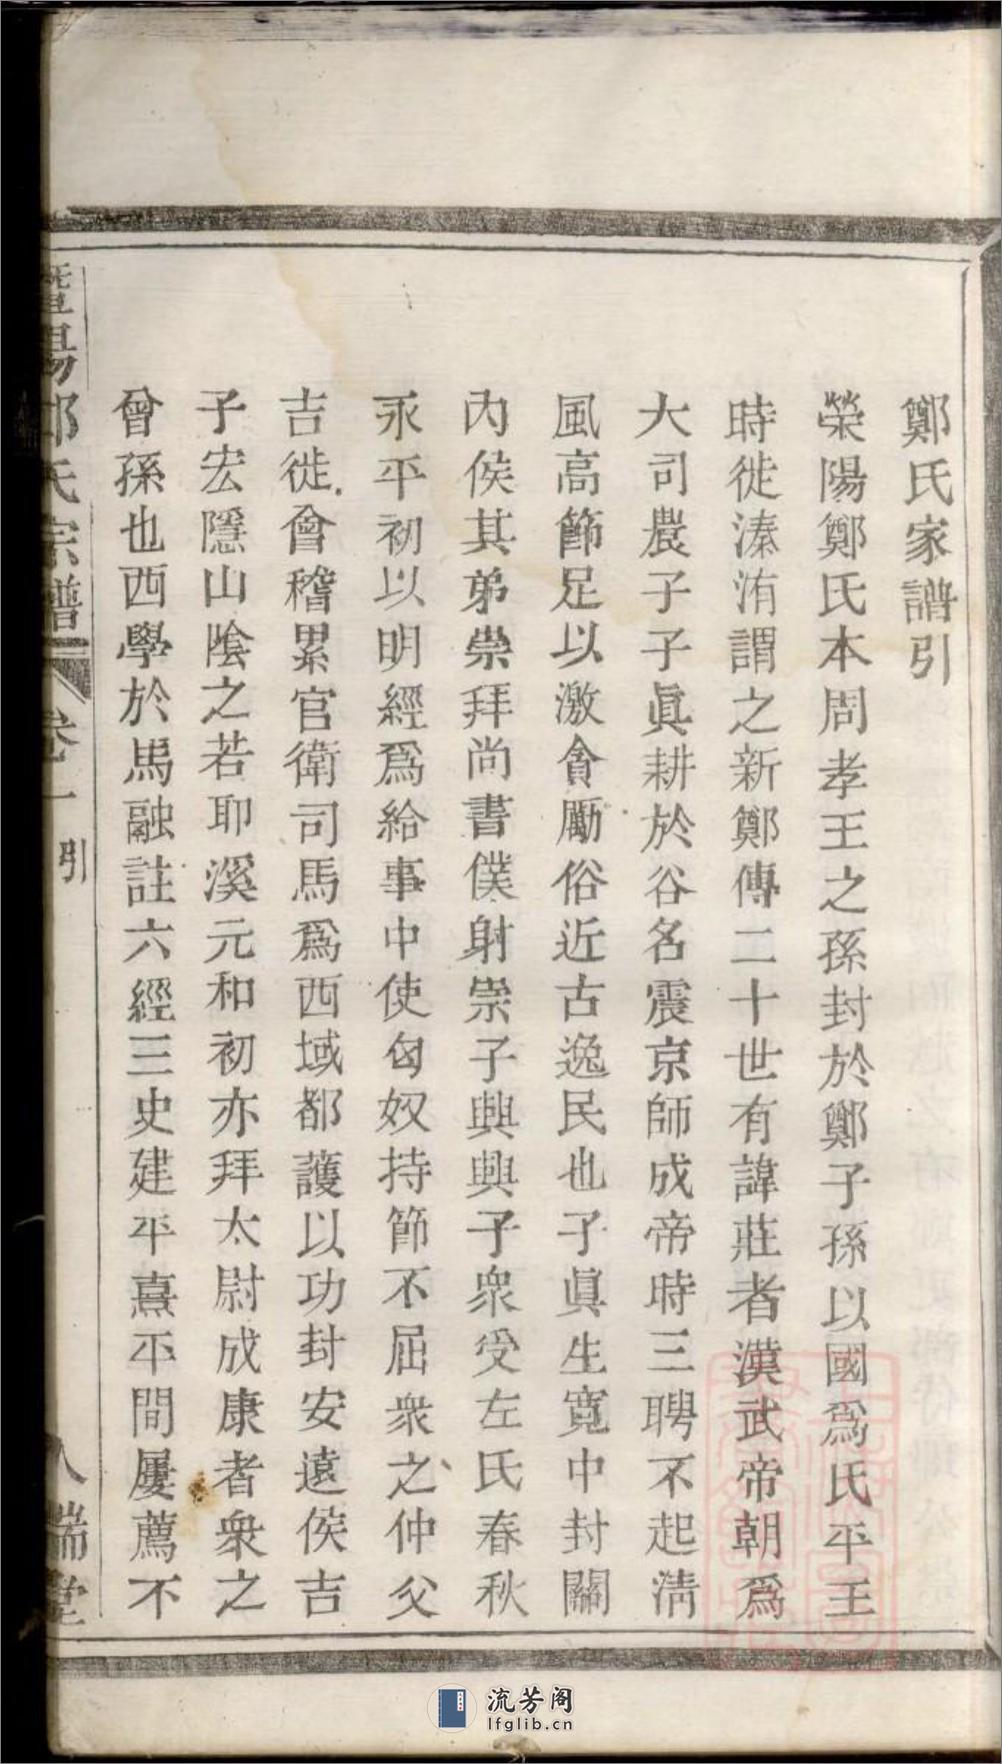 鄭氏家譜引
榮陽鄭氏本周孝王之孫封於鄭子孫以國爲氏平王
時徙溱洧謂之新鄭傳二十世有諱莊者漢武帝朝爲
大司農子子眞耕於谷名震京師成帝時三聘不起淸
風高節足以激貪勵俗近古逸民也子眞生寬中封關
內侯其弟崇拜尚書僕射崇子興興子衆受左氏春秋
永平初以明經爲給事中使匈奴持節不屈衆之仲父
吉徙會稽累官衛司馬爲西域都護以功封安遠侯吉
子宏隱山陰之若耶溪元和初亦拜太尉成康者衆之
曾孫也西學於馬融註六經三史建平熹平間屢薦不
暨陽鄭氏宗譜 卷一 引 八 瑞堂
流芳阁
lfglib.cn